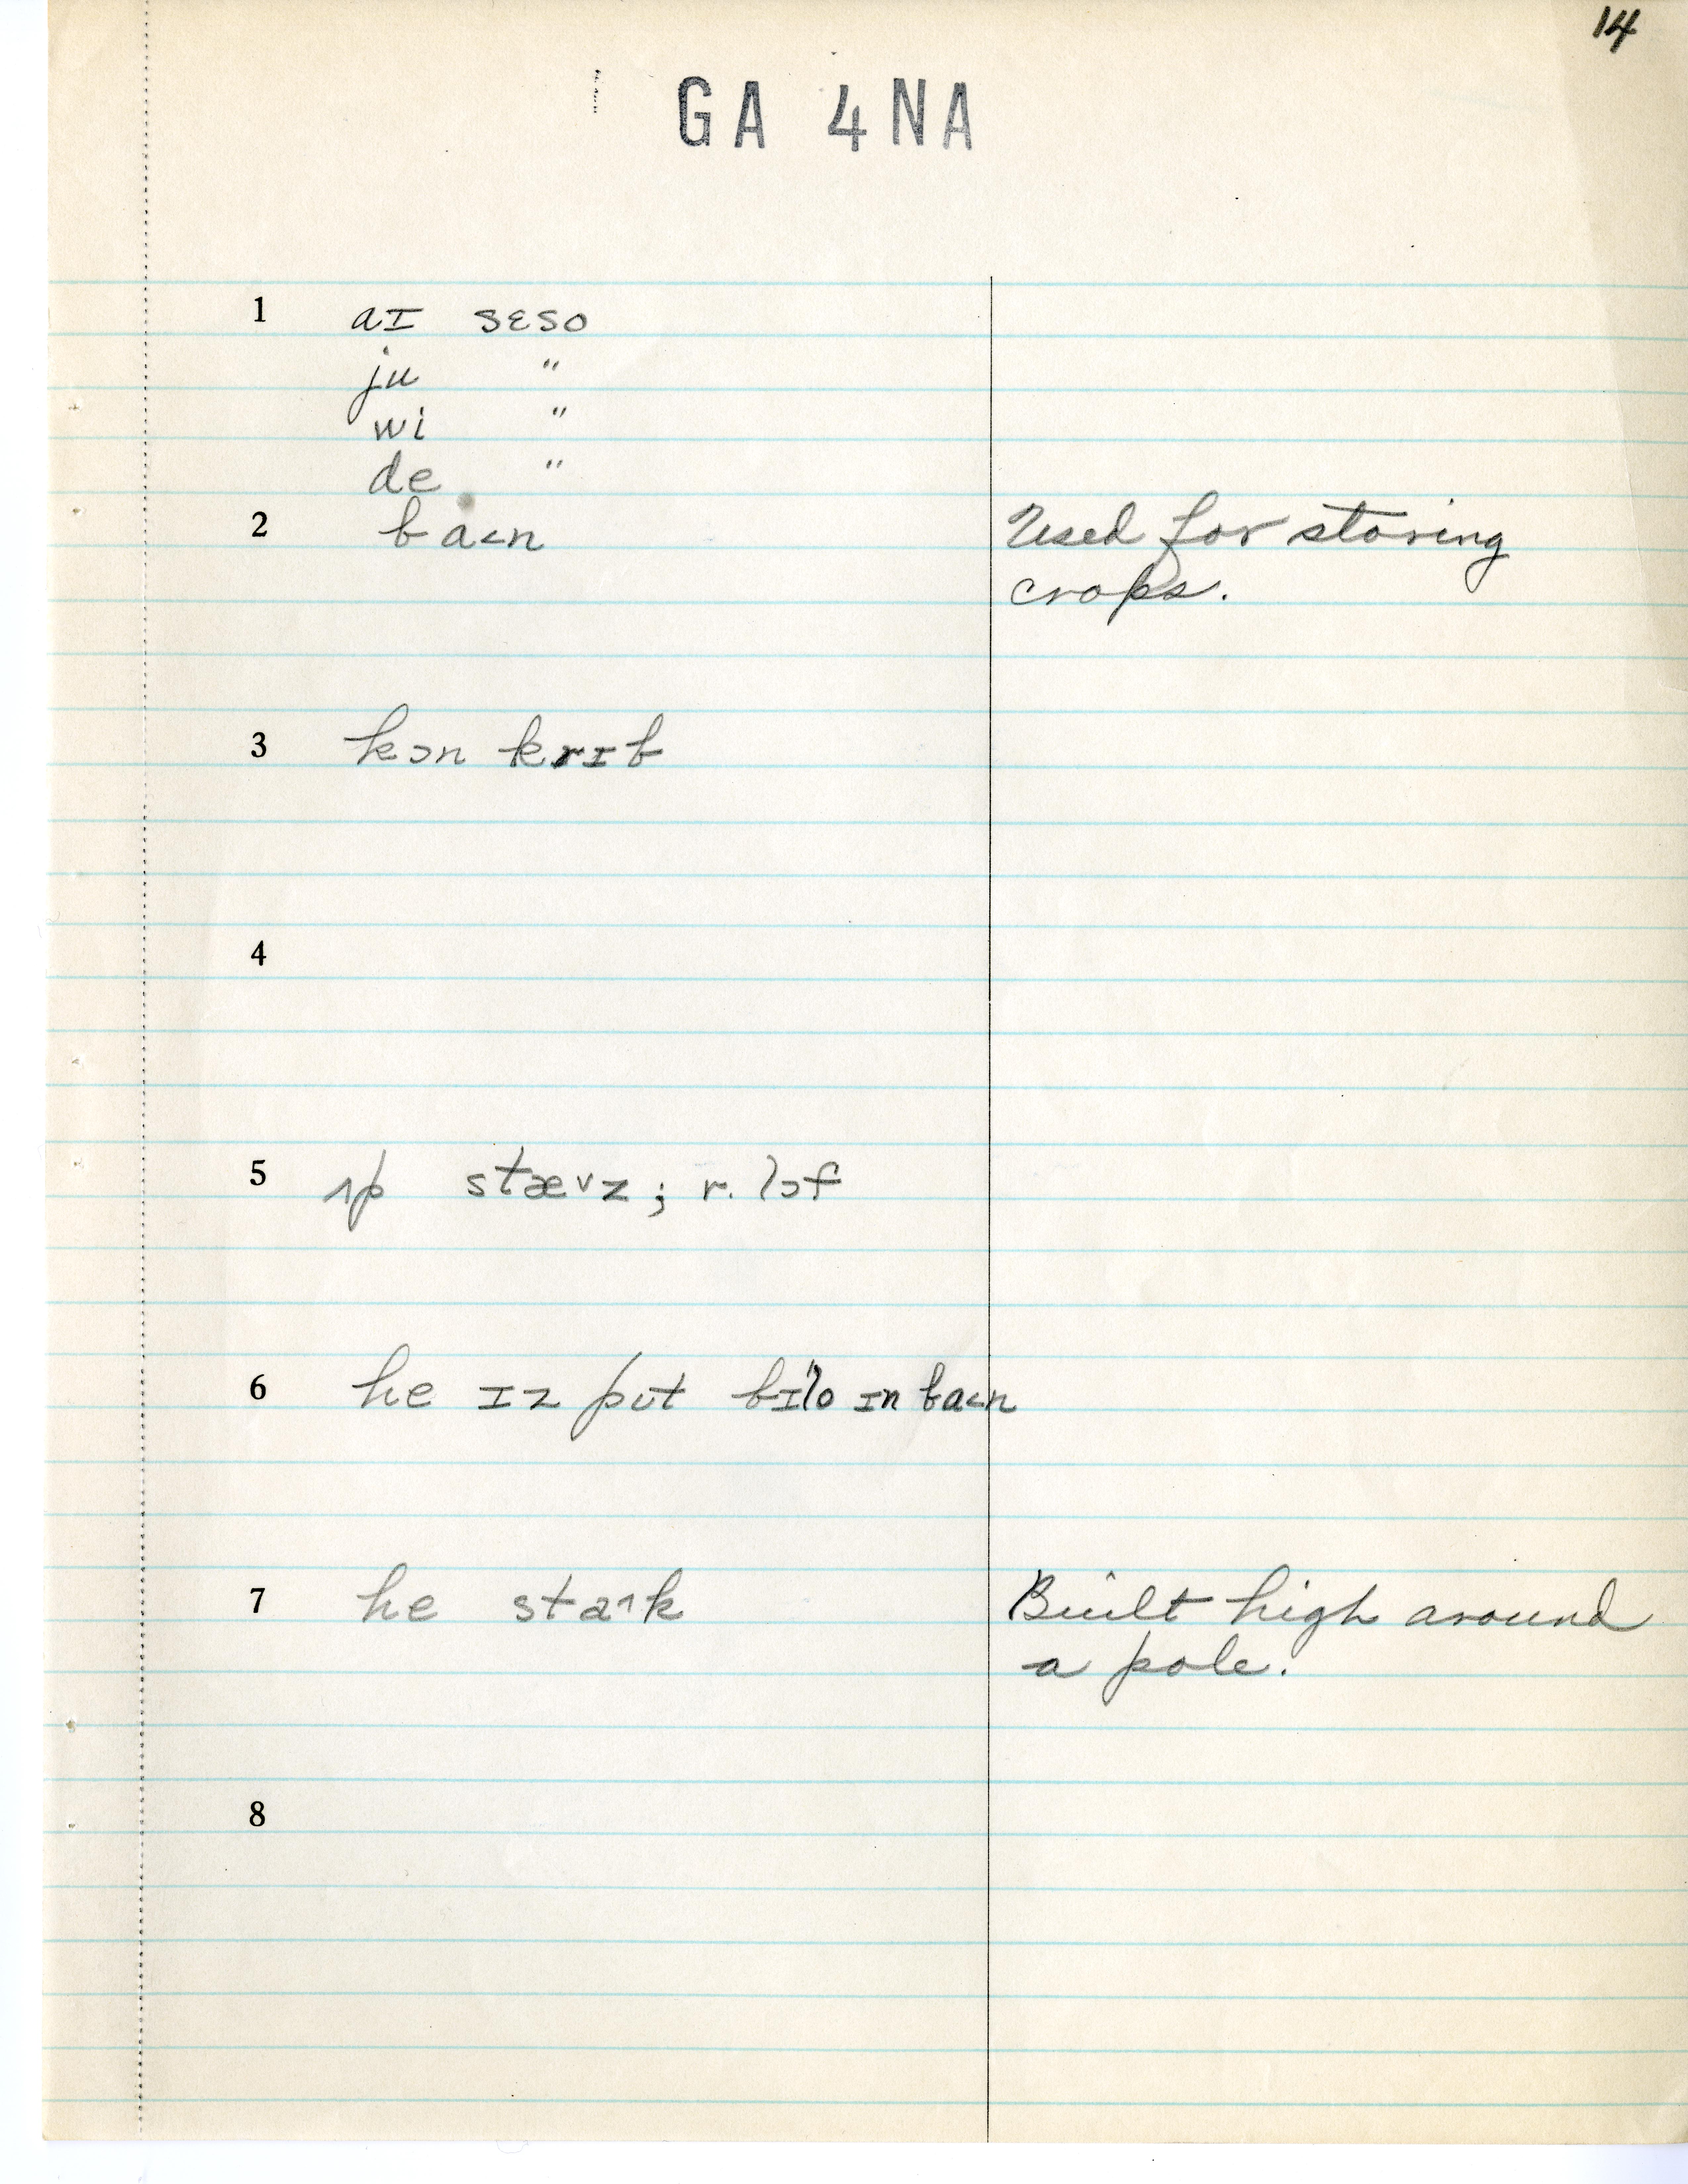 14
GA 4NA
1 aɪ sɛso
ju "
wi "
de "
2 ba˂n Used for storing
crops.
3 kɔn krɪb
4
5 ʌp stæ˅z; r. lɔf
6 he ɪz put bɪ'lo ɪn ba˂n
7 he sta˄k Built high around
a pole.
8